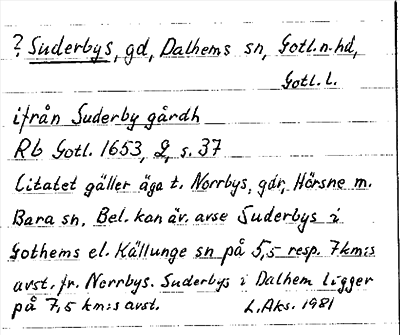 ? Suderbys, gd, Dalhems sn, Gotl.n.hd,
Gotl. l.
ifrån Suderby gårdh
Rb Gotl. 1653, 2, s. 37
Citatet gäller äga t. Norrbys, gdr, Hörsne m.
Bara sn. Bel. kan äv. avse Suderbys i
Gothems el. Källunge sn på 5,5 resp. 7 km:s
avst. fr. Norrbys. Suderbys i Dalhem ligger
på 7,5 km:s avst. L.Aks. 1981